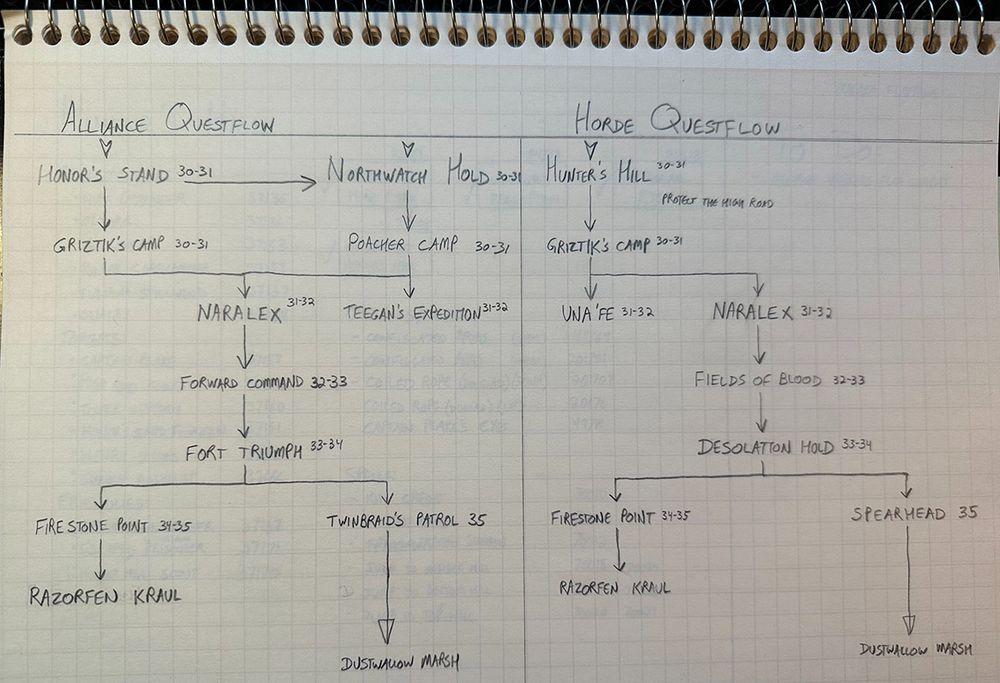 Alliance Questflow
Horde Questflow
Honor's Stand 30-31
Northwatch Hold 30-31
Hunter's Hill 30-31
Protect the High Road
Griztik's Camp 30-31
Poacher Camp 30-31
Griztik's Camp 30-31
Naralex 31-32
Teegan's Expedition 31-32
Una'fe 31-32
Naralex 31-32
Forward Command 32-33
Fields of Blood 32-33
Fort Triumph 33-34
Desolation Hold 33-34
Firestone Point 34-35
Twinbraid's Patrol 35
Firestone Point 34-35
Spearhead 35
Razorfen Kraul
Razorfen Kraul
Dustwallow Marsh
Dustwallow Marsh